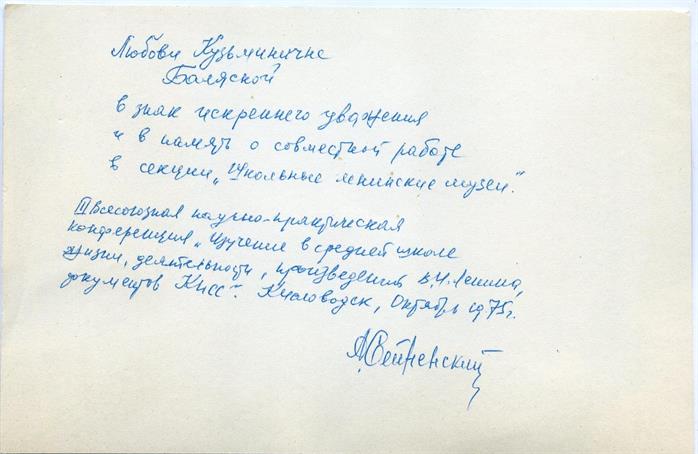 Любови Кузьминичне
Баляской
в знак искреннего уважения
и в память о совместной работе
в секции „Школьные ленинские музеи“.
III Всесоюзная научно-практическая
конференция „Изучение в средней школе
жизни, деятельности, произведений В.И. Ленина,
документов КПСС“. Кисловодск, Октябрь 1975г.
А. Сейненский